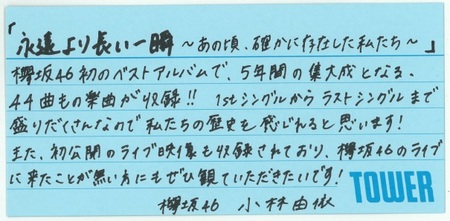 「永遠より長い一瞬 ～あの頃、確かに存在した私たち～」
欅坂46初のベストアルバムで、5年間の集大成となる、
44曲もの楽曲が収録!! 1stシングルからラストシングルまで
盛りだくさんなので私たちの歴史を感じれると思います!
また、初公開のライブ映像も収録されており、欅坂46のライブ
に来たことが無い方にもぜひ観ていただきたいです!
欅坂46 小林由依
TOWER